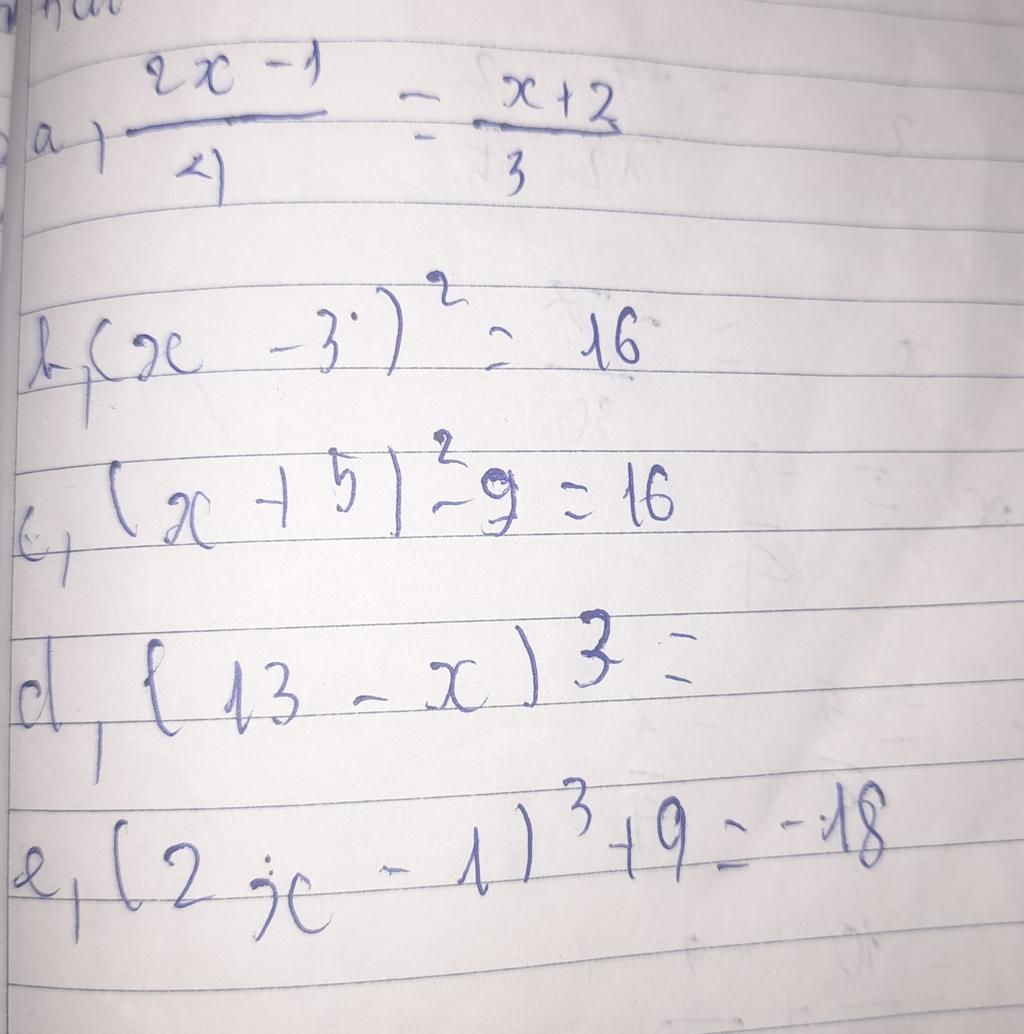 a, (2x - 1)/4 = (x + 2)/3
b, (x - 3)² = 16
c, (x + 5)² - 9 = 16
d, (13 - x)³ =
e, (2x - 1)³ + 9 = -18